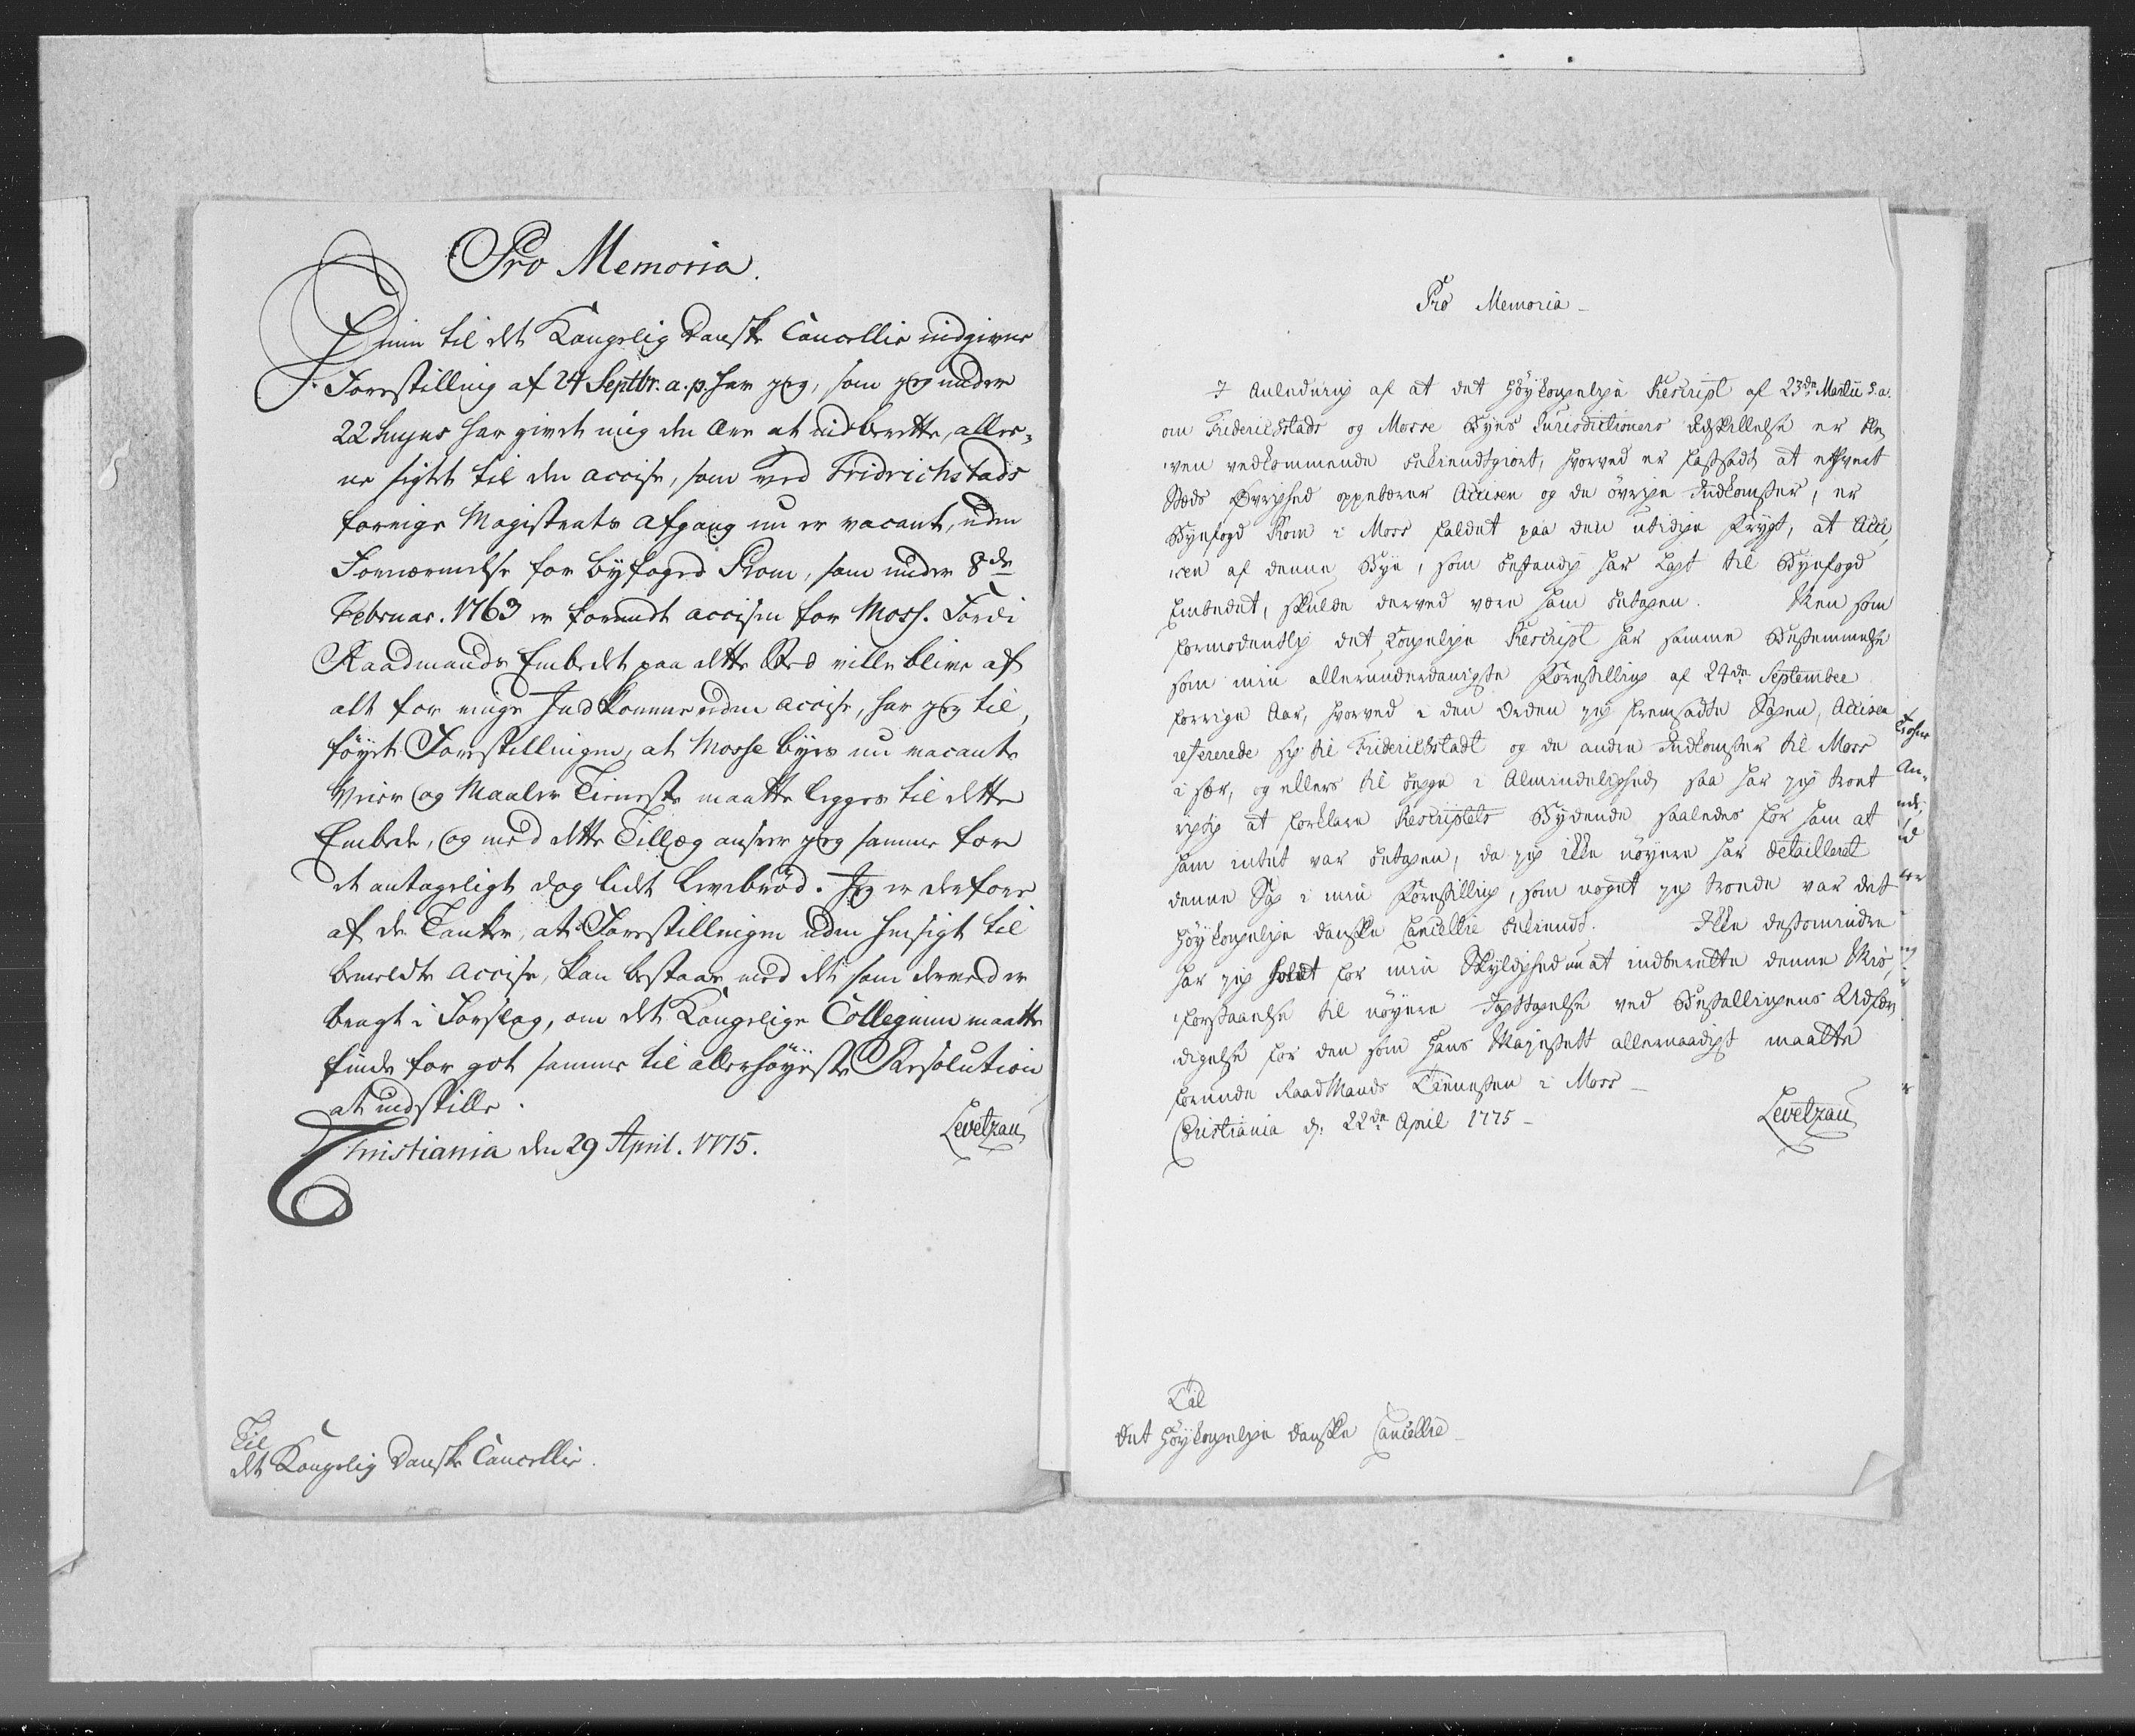 Pro Memoria.
I min til det Kongelig Danske Cancellie indgivne
Forestilling af 24 Septbr. a. p. har jeg, som jeg under
22 hujus har givet mig den Ære at indberette, alle¬
ne sigtet til den accise, som ved Fridrichstads
forrige Magistrats afgang nu er vacant, uden
Fornærmelse for byfoged Prom, som under 8de
Februar. 1763 er forundt accisen for Moss. Fordi
Raadmands Embedet paa dette Sted ville blive af
alt for ringe Indkomme uden accise, har jeg til¬
føyet Forestillingen, at Mosse byes nu vacante
Veier og Maaler Tieneste maatte legges til dette
Embede, og med dette Tillæg anseer jeg samme for
et antageligt dog lidet Levebrød. Jeg er derfore
af de Tanker, at Forestillingen uden hensigt til
bemeldte accise, kan bestaae med det som derved er
bragt i Forslag, om det Kongelige Collegium maatte
finde for got samme til allerhøyeste Resolution
at indstille.
Christiania den 29 April. 1775.
Levetzau
Til
det Kongelig Danske Cancellie.
Pro Memoria
I Anledning af at det høykongelige Rescript af 23de Martii d. a.
om Friderichstads og Mosse Byes Jurisdictioners Adskillelse er ble¬
ven vedkommende bekiendtgiort, hvorved er fastsadt at ethvert
Steds Øvrighed oppebærer Accisen og de øvrige Indkomster, er
Byefogd Prom i Moss faldet paa den utidige Frygt, at Acci¬
sen af denne Bye, som bestandig har lagt til Byefogd
Embedet, skulde derved være ham betagen. Men som
formodentlig det kongelige Rescript har samme Bestemmelse
som min allerunderdanigste Forestilling af 24de September
forrige Aar, hvorved i den Orden jeg fremsadte Sagen, Accisen
refererede sig til Friderichstadt og de andre Indkomster til Moss
i sær, og ellers til begge i Almindelighed, saa har jeg troet
rigtig at forklare Rescriptets Bydende saaledes for ham at
ham intet var betagen, da jeg ikke nøyere har detailleret
denne Sag i min Forestilling, som noget jeg troede var det
høykongelige danske Cancellie bekiendt. Ikke destomindre
har jeg holdt for min Skyldighed at indberette denne Mis¬
forstaaelse til nøyere Iagttagelse ved Bestallingens Udfær¬
digelse for den som Hans Majestett allernaadigst maatte
forunde RaadMands Tienesten i Moss
Christiania d: 22de April 1775
Levetzau
Til
det høykongelige danske Cancellie